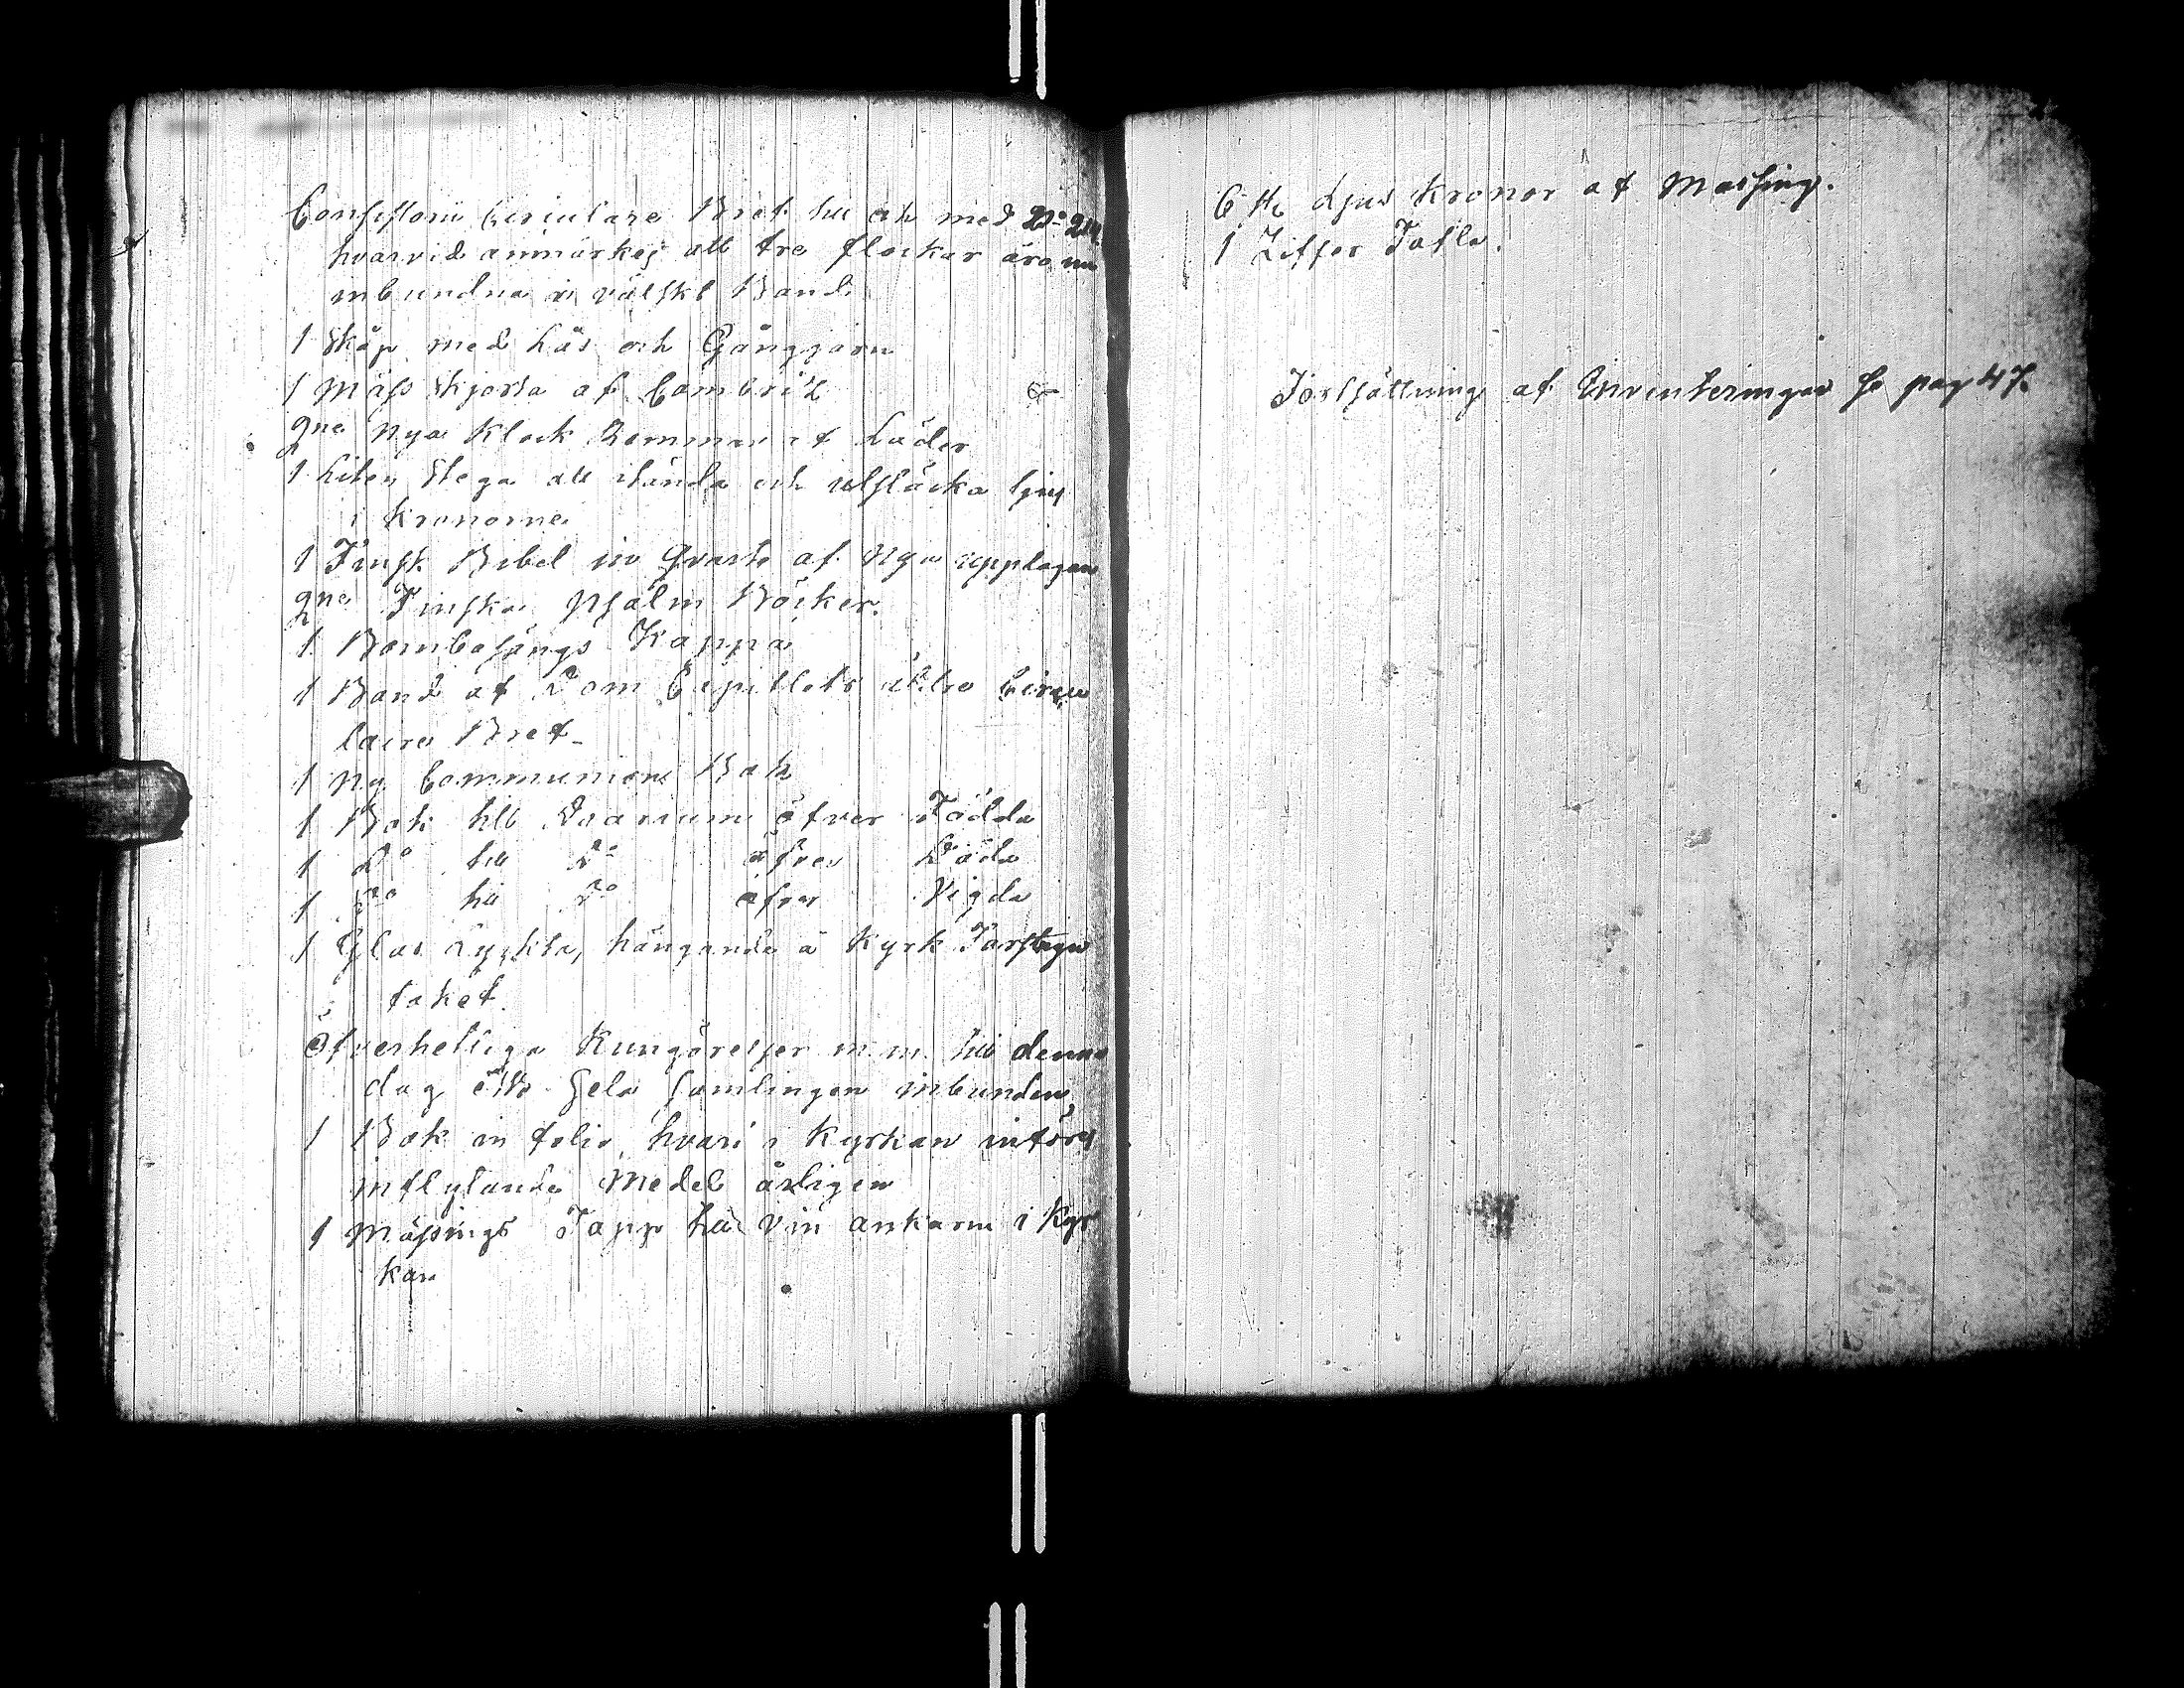 Consistorii Circulaire Bref till och med
hvarvid anmärkes att tre flockar äro nu
inbundna i välskt Band
1 Skåp med Lås och Gångjärn
1 Mäss Skjorta af Cambrik
2ne nya Klock Remmar af Läder
1 Liten Stega att tända och utsläcka ljus
i Kronorne
1 Finsk Bibel in Qvarto af nya upplagan
2ne Finska Psalm Böcker.
1 Bombasängs Kappa
1 Band af Dom Capitlets äldre Circu
laire Bref
1 ny Communion Bok
1 Bok till Diarium öfver Födda
1 Do till Do öfver Döda
1 Do till Do öfver Vigda
1 Glas Lyckta, hängande i Kyrk Farstugu
taket
Öfverhetliga Kungörelser m.m. till denna
dag eller hela samlingen inbunden
1 Bok in folio, hvari i Kyrkan införes
inflytande Medel årligen
1 Mässings Tapp till Vin ankarne i Kyr
kan
6 st. Ljus Kronor af Massing.
1 Ziffer Tafla.
Fortsättning af Inventeringen se pag 47.